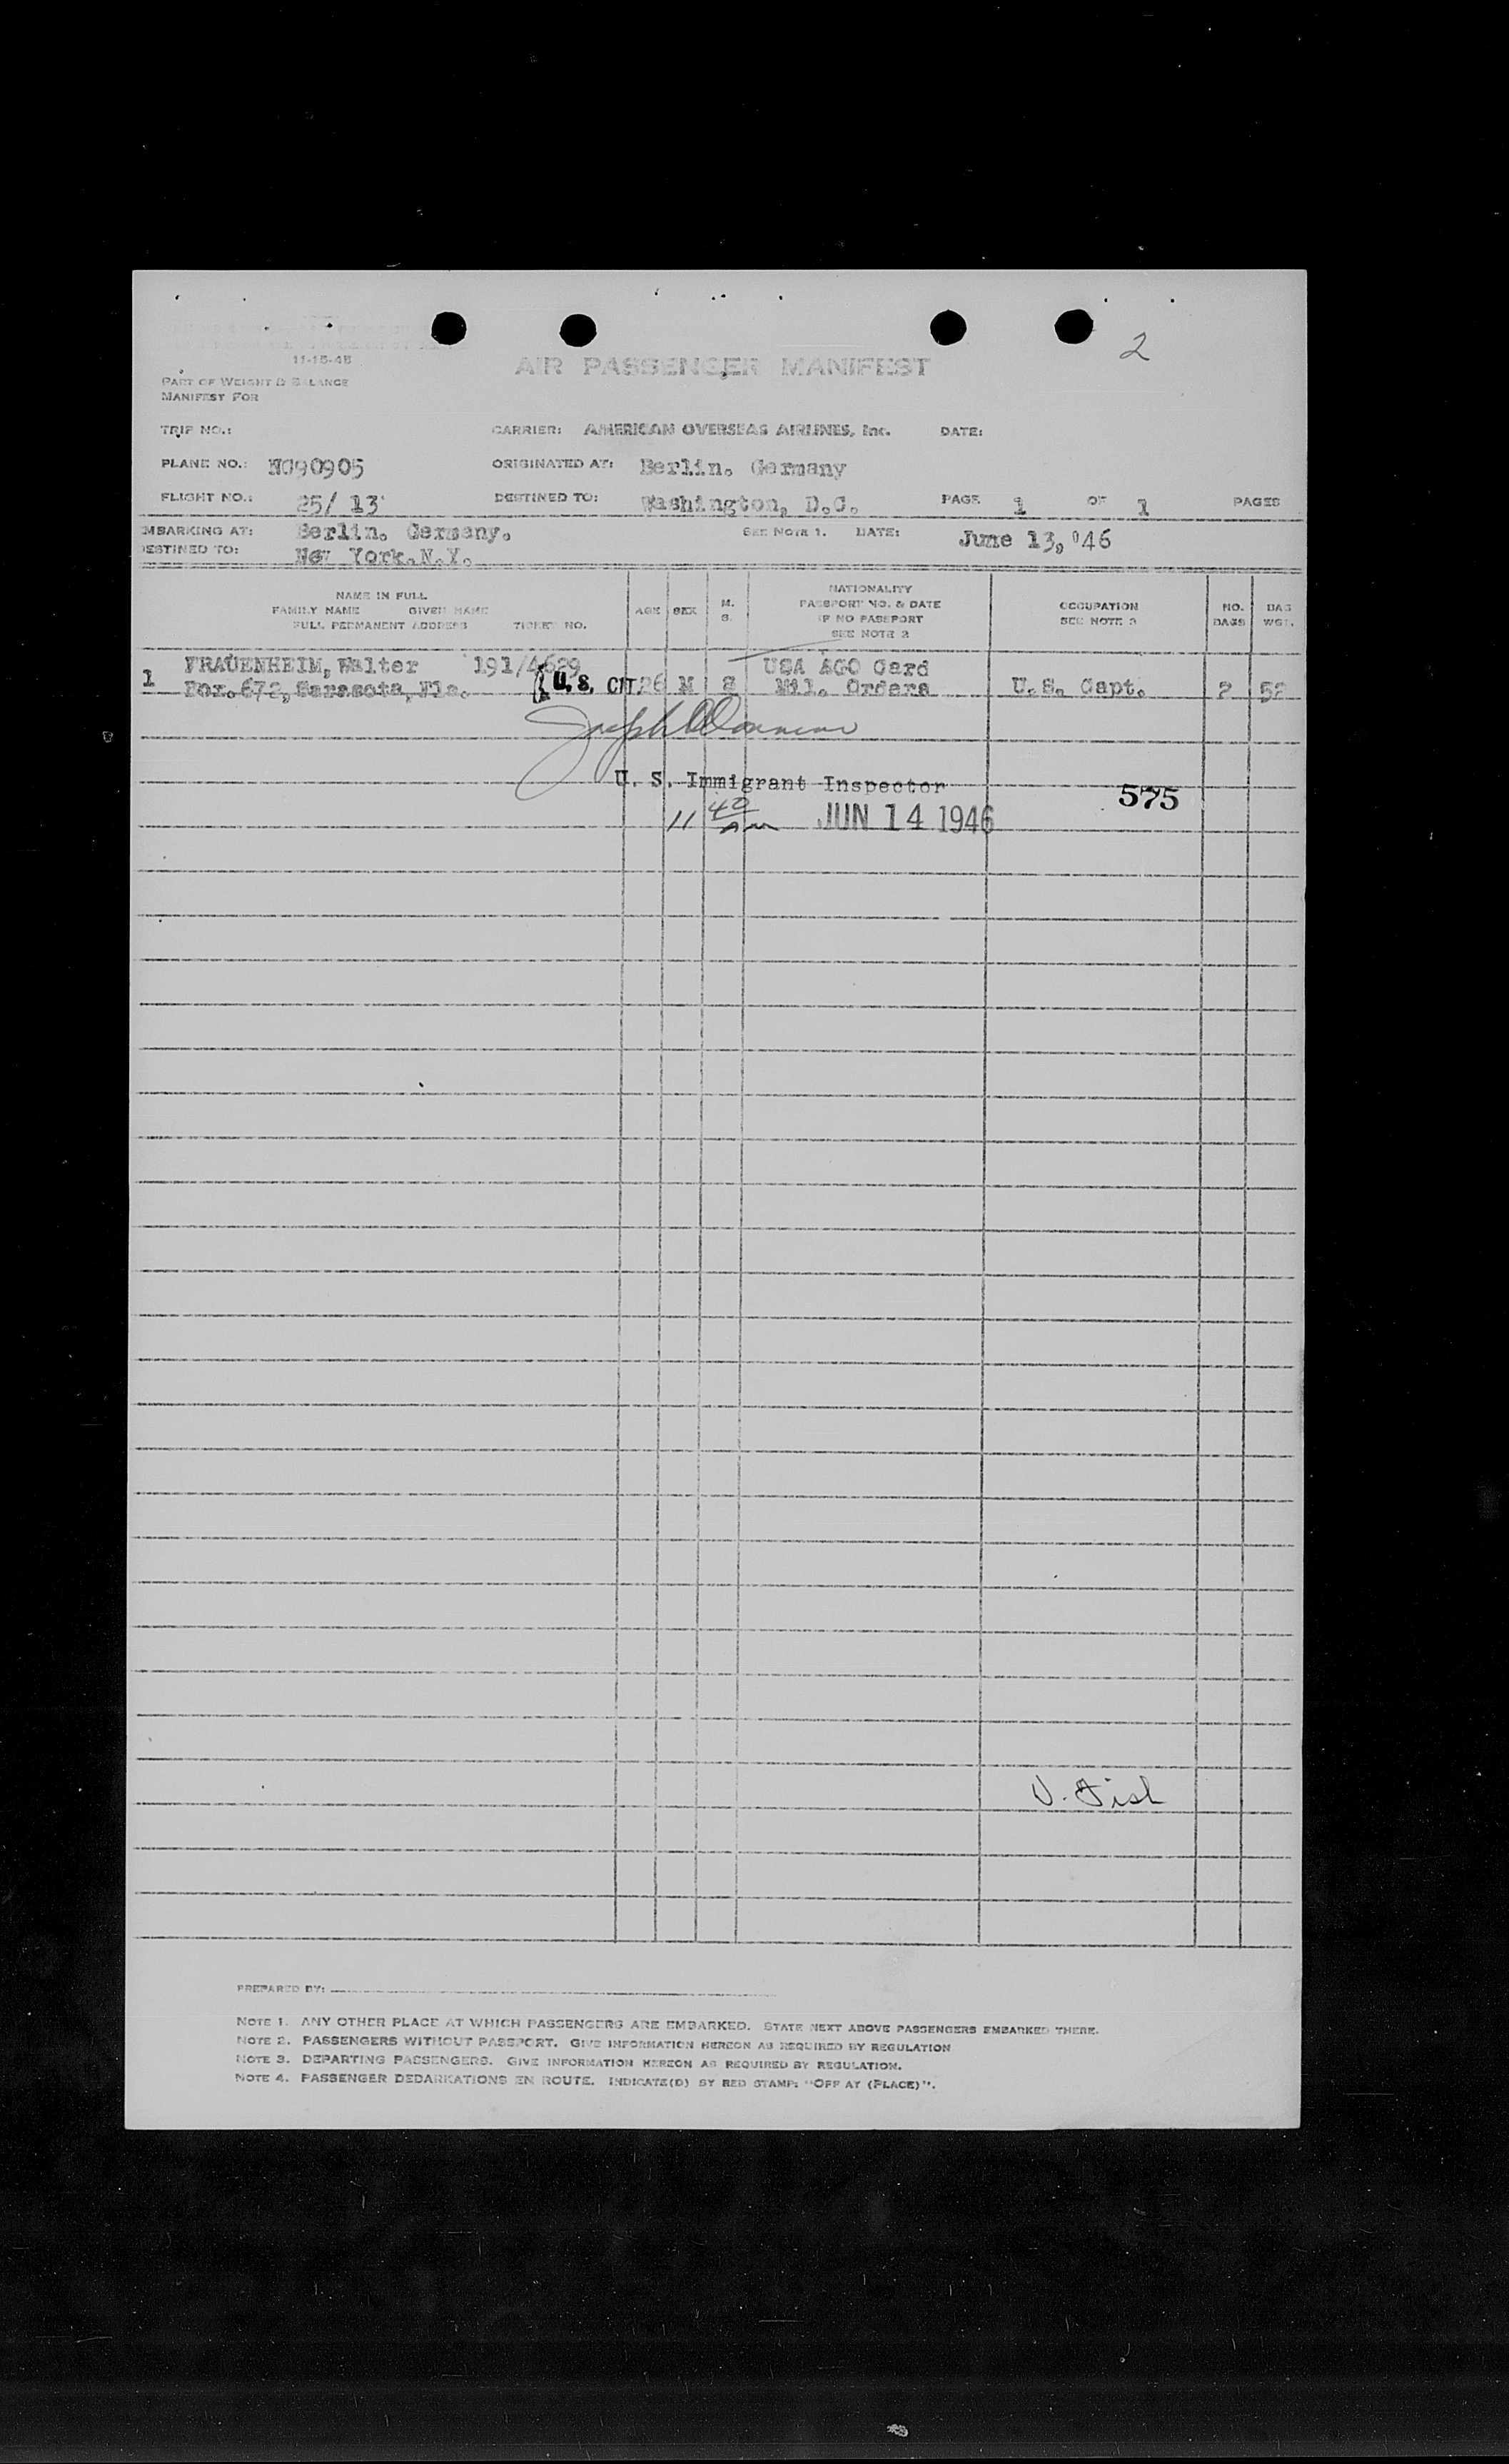 2
11-15-45
AIR PASSENGER MANIFEST
PART OF WEIGHT & BALANCE
MANIFEST FOR
TRIP NO.: CARRIER: AMERICAN OVERSEAS AIRLINES, Inc. DATE:
PLANE NO.: NC90905 ORIGINATED AT: Berlin. Germany
FLIGHT NO.: 25/ 13 DESTINED TO: Washington, D.C. PAGE 1 OF 1 PAGES
MBARKING AT: Berlin. Germany. SEE NOTE 1. DATE: June 13, '46
ESTINED TO: New York.N.Y.
NAME IN FULL
FAMILY NAME GIVEN NAME
FULL PERMANENT ADDRESS TICKET NO.
AGE SEX M. S.
NATIONALITY
PASSPORT NO. & DATE
IF NO PASSPORT
SEE NOTE 2
OCCUPATION
SEE NOTE 3
NO. BAGS
BAG WGT.
FRAUENHEIM, Walter 191/4629 USA AGO Card
1 Box.672, Sarasota, Fla. U.S. CIT. 26 M S Mil. Orders U.S. Capt. 2 52
Joseph
U. S. Immigrant Inspector
575
11 40 AM JUN 14 1946
V. Fish
PREPARED BY:
NOTE 1. ANY OTHER PLACE AT WHICH PASSENGERS ARE EMBARKED. STATE NEXT ABOVE PASSENGERS EMBARKED THERE.
NOTE 2. PASSENGERS WITHOUT PASSPORT. GIVE INFORMATION HEREON AS REQUIRED BY REGULATION
NOTE 3. DEPARTING PASSENGERS. GIVE INFORMATION HEREON AS REQUIRED BY REGULATION.
NOTE 4. PASSENGER DEBARKATIONS EN ROUTE. INDICATE(D) BY RED STAMP: "OFF AT (PLACE)".